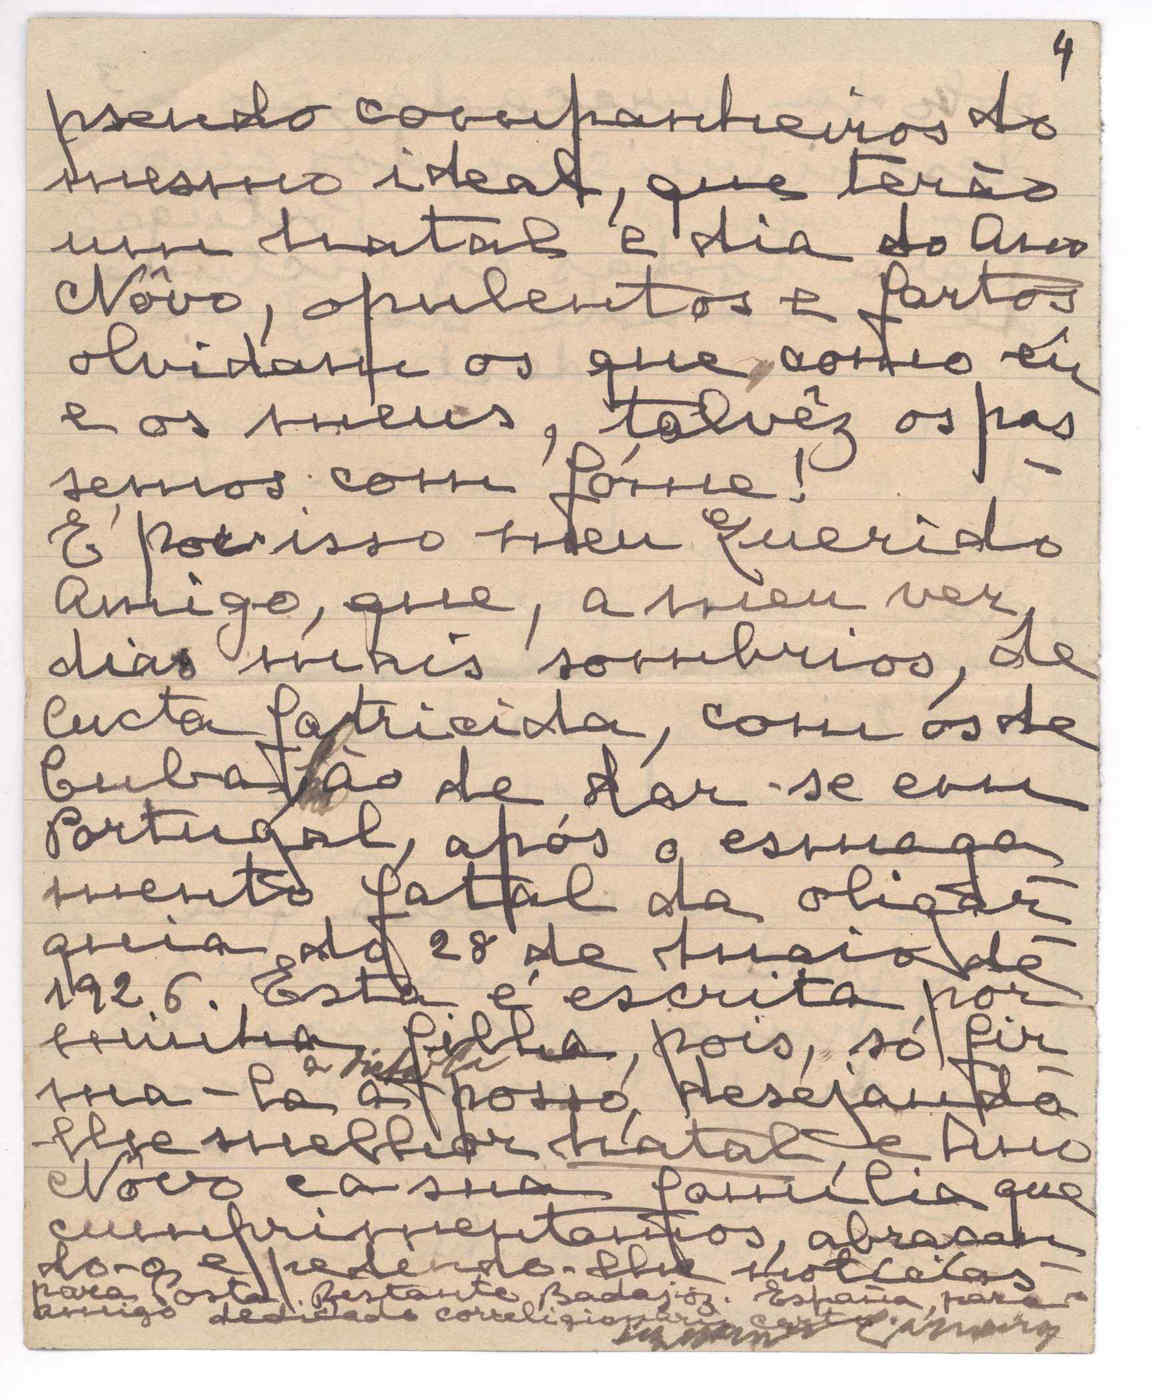 4
pseudo companheiros do
mesmo ideal, que terão
um natal e dia do Ano
Nôvo, opulentos e fartos
olvidam os que como eu
e os meus, talvêz os pas
semos com fóme!
E' por isso meu Querido
Amigo, que, a meu ver,
dias mais sombrios, de
lucta fatricida, com ós de
Cuba hão de dar-se em
Portugal, após o esmaga
mento fatal da oligar-
quia do 28 de maio de
1926. Esta é escrita por
minha filha, pois, só fir
ma-la posso, desejando
-lhe melhor natal e Ano
Nôvo e a sua família que
cumprimentamos, abraçan
do-o e pedendo-lhe noticias
para Posta Restante Badajoz. España, para o
amigo dedicado correligionario certo.